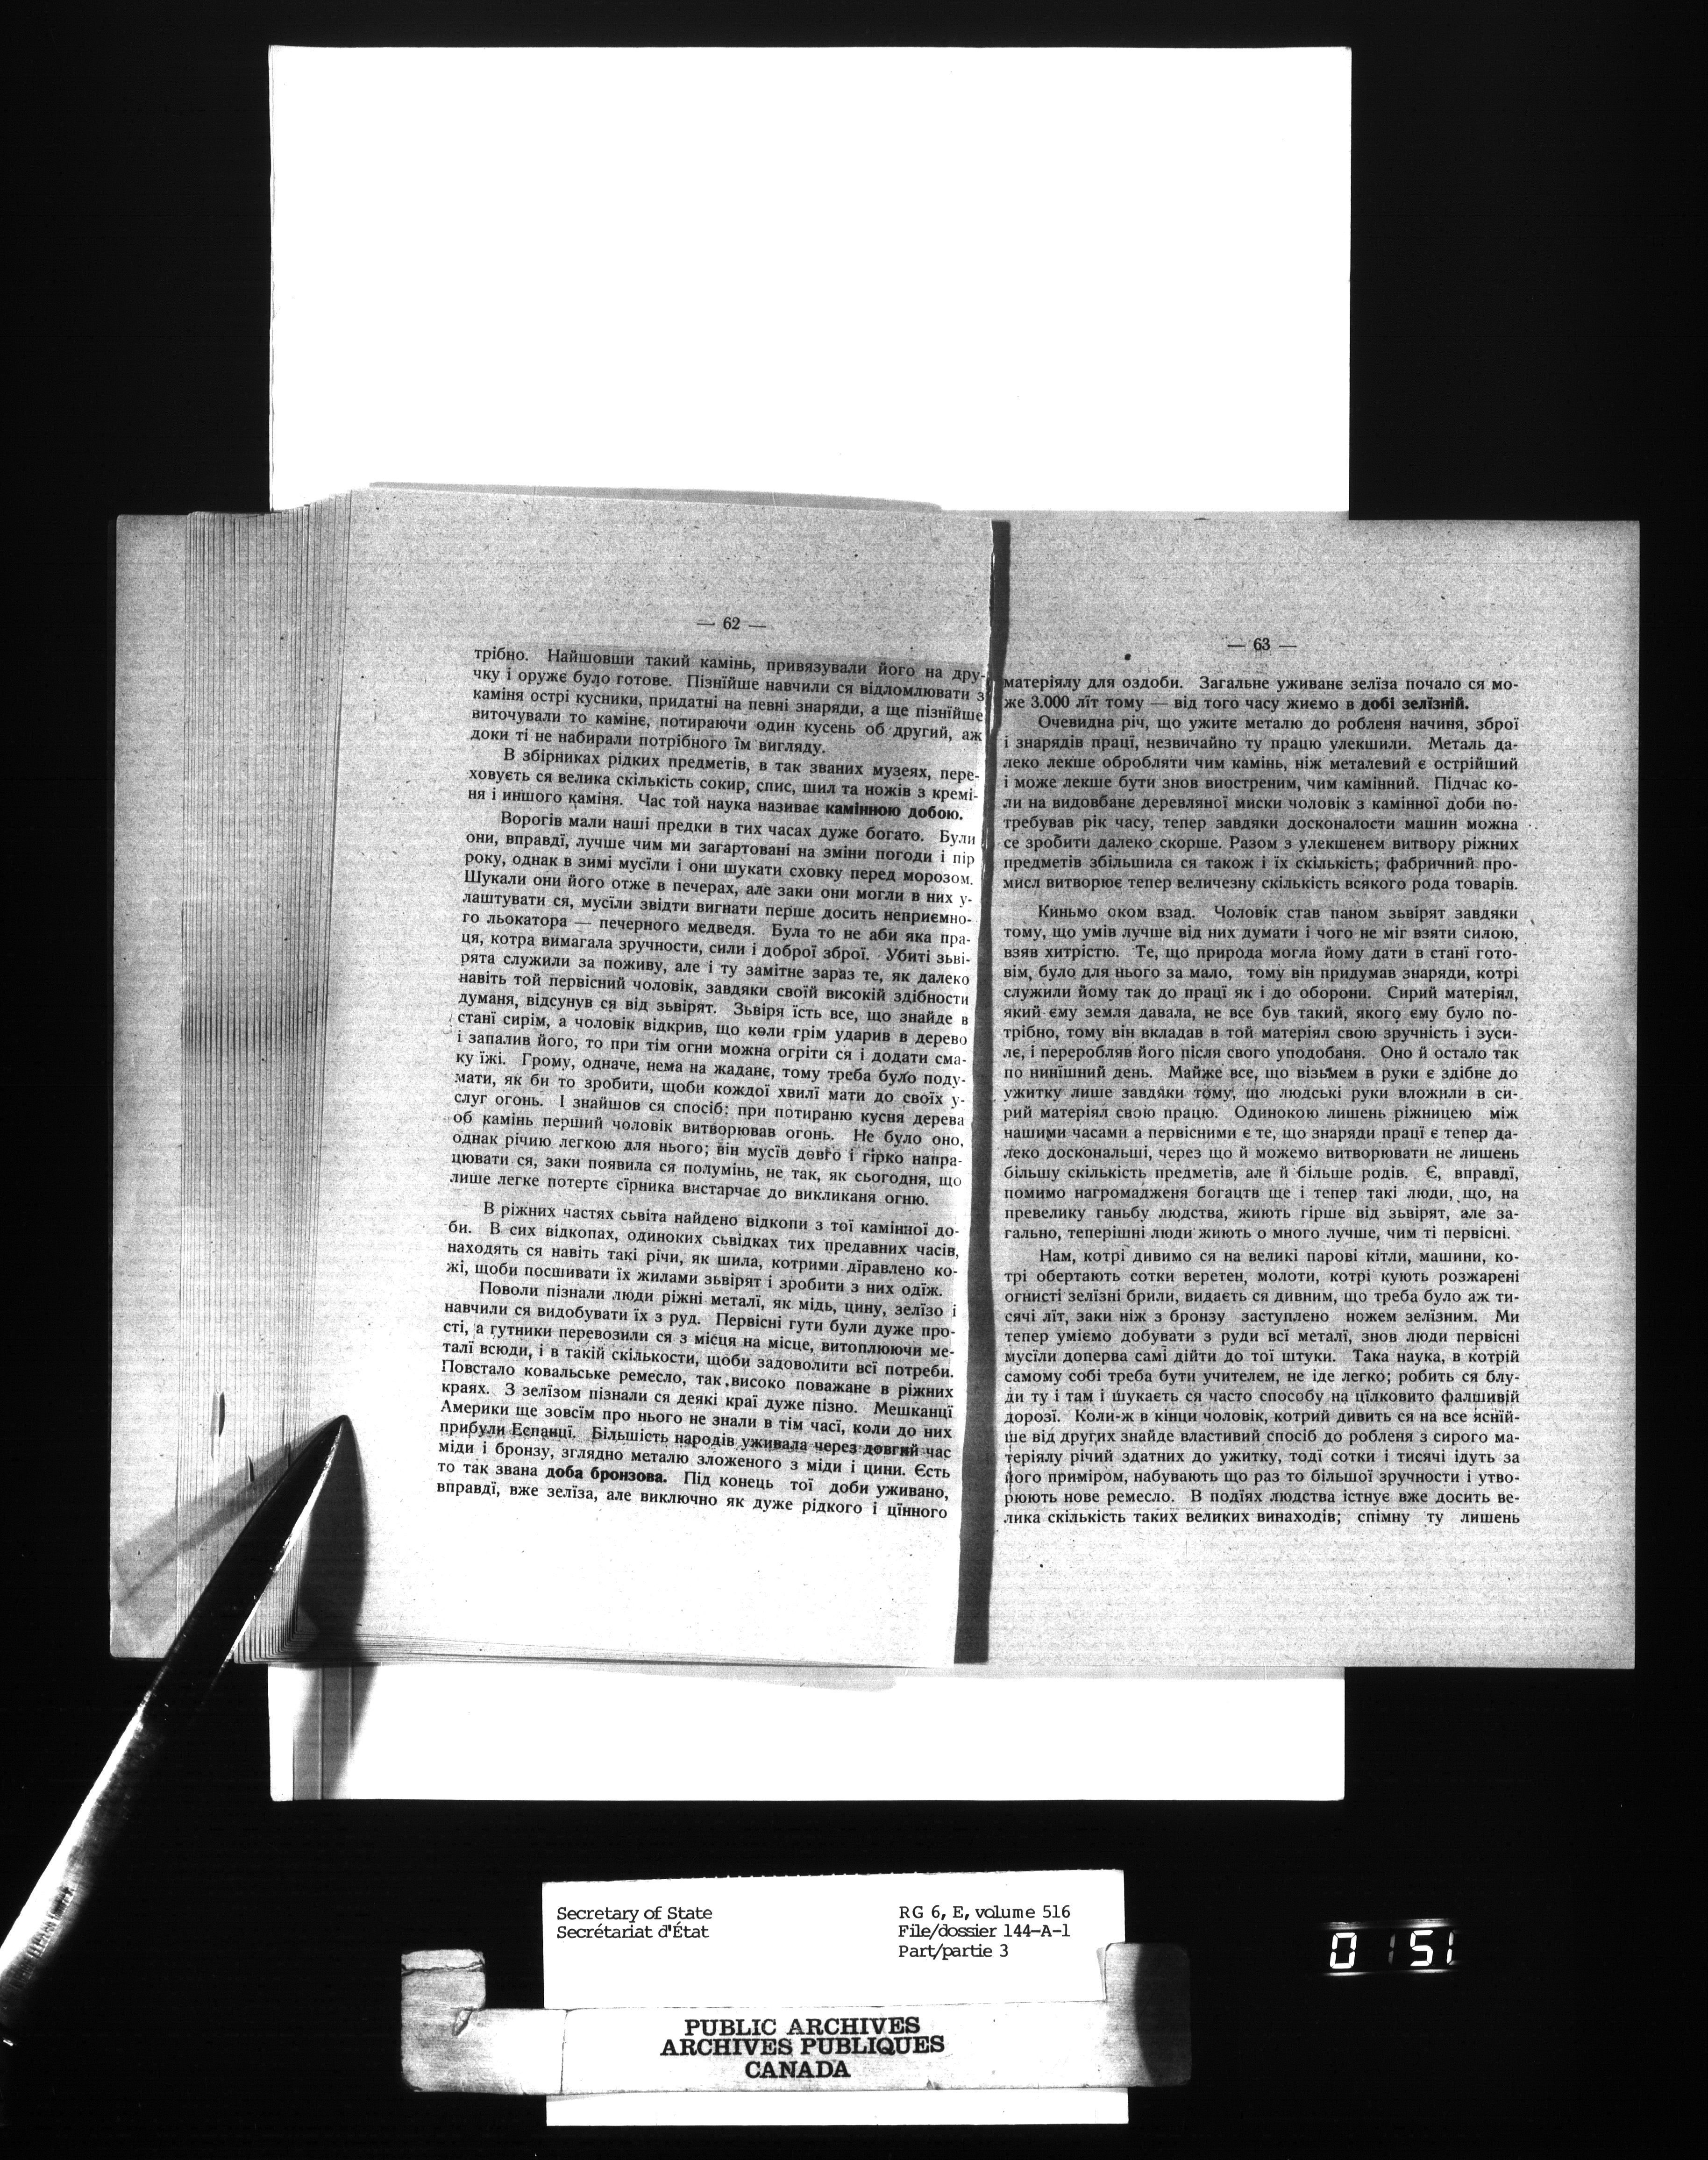 — 62 —
трібно. Найшовши такий камінь, привязували його на дру-
чку і оружє було готове. Пізнїйше навчили ся відломлювати з
каміня острі кусники, придатні на певні знаряди, а ще пізнїйше
виточували то камінє, потираючи один кусень об другий, аж
доки ті не набирали потрібного їм вигляду.
В збірниках рідких предметів, в так званих музеях, пере-
ховуєть ся велика скількість сокир, спис, шил та ножів з кремі-
ня і иншого каміня. Час той наука називає камінною добою.
Ворогів мали наші предки в тих часах дуже богато. Були
они, вправдї, лучше чим ми загартовані на зміни погоди і пір
року, однак в зимі мусїли і они шукати сховку перед морозом.
Шукали они його отже в печерах, але заки они могли в них у-
лаштувати ся, мусїли звідти вигнати перше досить неприємно-
го льокатора — печерного медведя. Була то не аби яка пра-
ця, котра вимагала зручности, сили і доброї зброї. Убиті зьві-
рята служили за поживу, але і ту замітне зараз те, як далеко
навіть той первісний чоловік, завдяки своїй високій здібности
думаня, відсунув ся від зьвірят. Зьвіря їсть все, що знайде в
станї сирім, а чоловік відкрив, що коли грім ударив в дерево
і запалив його, то при тім огни можна огріти ся і додати сма-
ку їжі. Грому, одначе, нема на жаданє, тому треба було поду-
мати, як би то зробити, щоби кождої хвилї мати до своїх у-
слуг огонь. І знайшов ся спосіб: при потираню кусня дерева
об камінь перший чоловік витворював огонь. Не було оно,
однак річию легкою для нього; він мусів довго і гірко напра-
цювати ся, заки появила ся полумінь, не так, як сьогодня, що
лише легке потертє сїрника вистарчає до викликаня огню.
В ріжних частях сьвіта найдено відкопи з тої камінної до-
би. В сих відкопах, одиноких сьвідках тих предавних часів,
находять ся навіть такі річи, як шила, котрими дїравлено ко-
жі, щоби посшивати їх жилами зьвірят і зробити з них одїж.
Поволи пізнали люди ріжні металї, як мідь, цину, зелїзо і
навчили ся видобувати їх з руд. Первісні гути були дуже про-
сті, а гутники перевозили ся з місця на місце, витоплюючи ме-
талї всюди, і в такій скількости, щоби задоволити всї потреби.
Повстало ковальське ремесло, так високо поважане в ріжних
краях. З зелїзом пізнали ся деякі краї дуже пізно. Мешканцї
Америки ще зовсїм про нього не знали в тім часї, коли до них
прибули Еспанцї. Більшість народів уживала через довгий час
міди і бронзу, зглядно металю зложеного з міди і цини. Єсть
то так звана доба бронзова. Під конець тої доби уживано,
вправдї, вже зелїза, але виключно як дуже рідкого і цїнного
— 63 —
матеріялу для оздоби. Загальне уживанє зелїза почало ся мо-
же 3.000 лїт тому — від того часу жиємо в добі зелїзній.
Очевидна річ, що ужитє металю до робленя начиня, зброї
і знарядів працї, незвичайно ту працю улекшили. Металь да-
леко лекше обробляти чим камінь, ніж металевий є острійший
і може лекше бути знов виостреним, чим камінний. Підчас ко-
ли на видовбанє деревляної миски чоловік з камінної доби по-
требував рік часу, тепер завдяки досконалости машин можна
се зробити далеко скорше. Разом з улекшенєм витвору ріжних
предметів збільшила ся також і їх скількість; фабричний про-
мисл витворює тепер величезну скількість всякого рода товарів.
Киньмо оком взад. Чоловік став паном зьвірят завдяки
тому, що умів лучше від них думати і чого не міг взяти силою,
взяв хитрістю. Те, що природа могла йому дати в стані гото-
вім, було для нього за мало, тому він придумав знаряди, котрі
служили йому так до працї як і до оборони. Сирий матеріял,
який єму земля давала, не все був такий, якого єму було по-
трібно, тому він вкладав в той матеріял свою зручність і зуси-
лє, і переробляв його після свого уподобаня. Оно й остало так
по нинїшний день. Майже все, що візьмем в руки є здібне до
ужитку лише завдяки тому, що людські руки вложили в си-
рий матеріял свою працю. Одинокою лишень ріжницею між
нашими часами а первісними є те, що знаряди працї є тепер да-
леко доскональші, через що й можемо витворювати не лишень
більшу скількість предметів, але й більше родів. Є, вправдї,
помимо нагромадженя богацтв ще і тепер такі люди, що, на
превелику ганьбу людства, жиють гірше від зьвірят, але за-
гально, теперішні люди жиють о много лучше, чим ті первісні.
Нам, котрі дивимо ся на великі парові кітли, машини, ко-
трі обертають сотки веретен, молоти, котрі кують розжарені
огнисті зелїзні брили, видаєть ся дивним, що треба було аж ти-
сячі лїт, заки ніж з бронзу заступлено ножем зелїзним. Ми
тепер уміємо добувати з руди всї металї, знов люди первісні
мусїли доперва самі дійти до тої штуки. Така наука, в котрій
самому собі треба бути учителем, не іде легко; робить ся блу-
ди ту і там і шукаєть ся часто способу на цїлковито фалшивій
дорозї. Коли-ж в кінци чоловік, котрий дивить ся на все яснїй-
ше від других знайде властивий спосіб до робленя з сирого ма-
теріялу річий здатних до ужитку, тодї сотки і тисячі ідуть за
його приміром, набувають що раз то більшої зручности і утво-
рюють нове ремесло. В подїях людства істнує вже досить ве-
лика скількість таких великих винаходів; спімну ту лишень
Secretary of State
Secrétariat d'État
RG 6, E, volume 516
File/dossier 144-A-1
Part/partie 3
PUBLIC ARCHIVES
ARCHIVES PUBLIQUES
CANADA
0 151